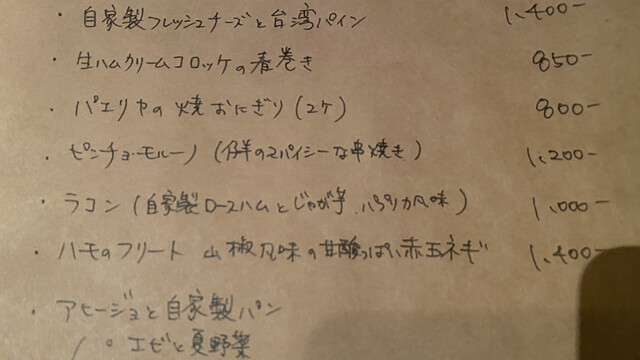 ・ 自家製フレッシュチーズと台湾パイン 1,400-
・ 生ハムクリームコロッケの春巻き 850-
・ パエリヤの焼おにぎり(2ケ) 800-
・ ピンチョ・モルーノ (仔羊のスパイシーな串焼き) 1,200-
・ ラコン (自家製ロースハムとじゃが芋、パプリカ風味) 1,000-
・ ハモのフリート 山椒風味の甘酸っぱい赤玉ネギ 1,400-
・ アヒージョと自家製パン
エビと夏野菜